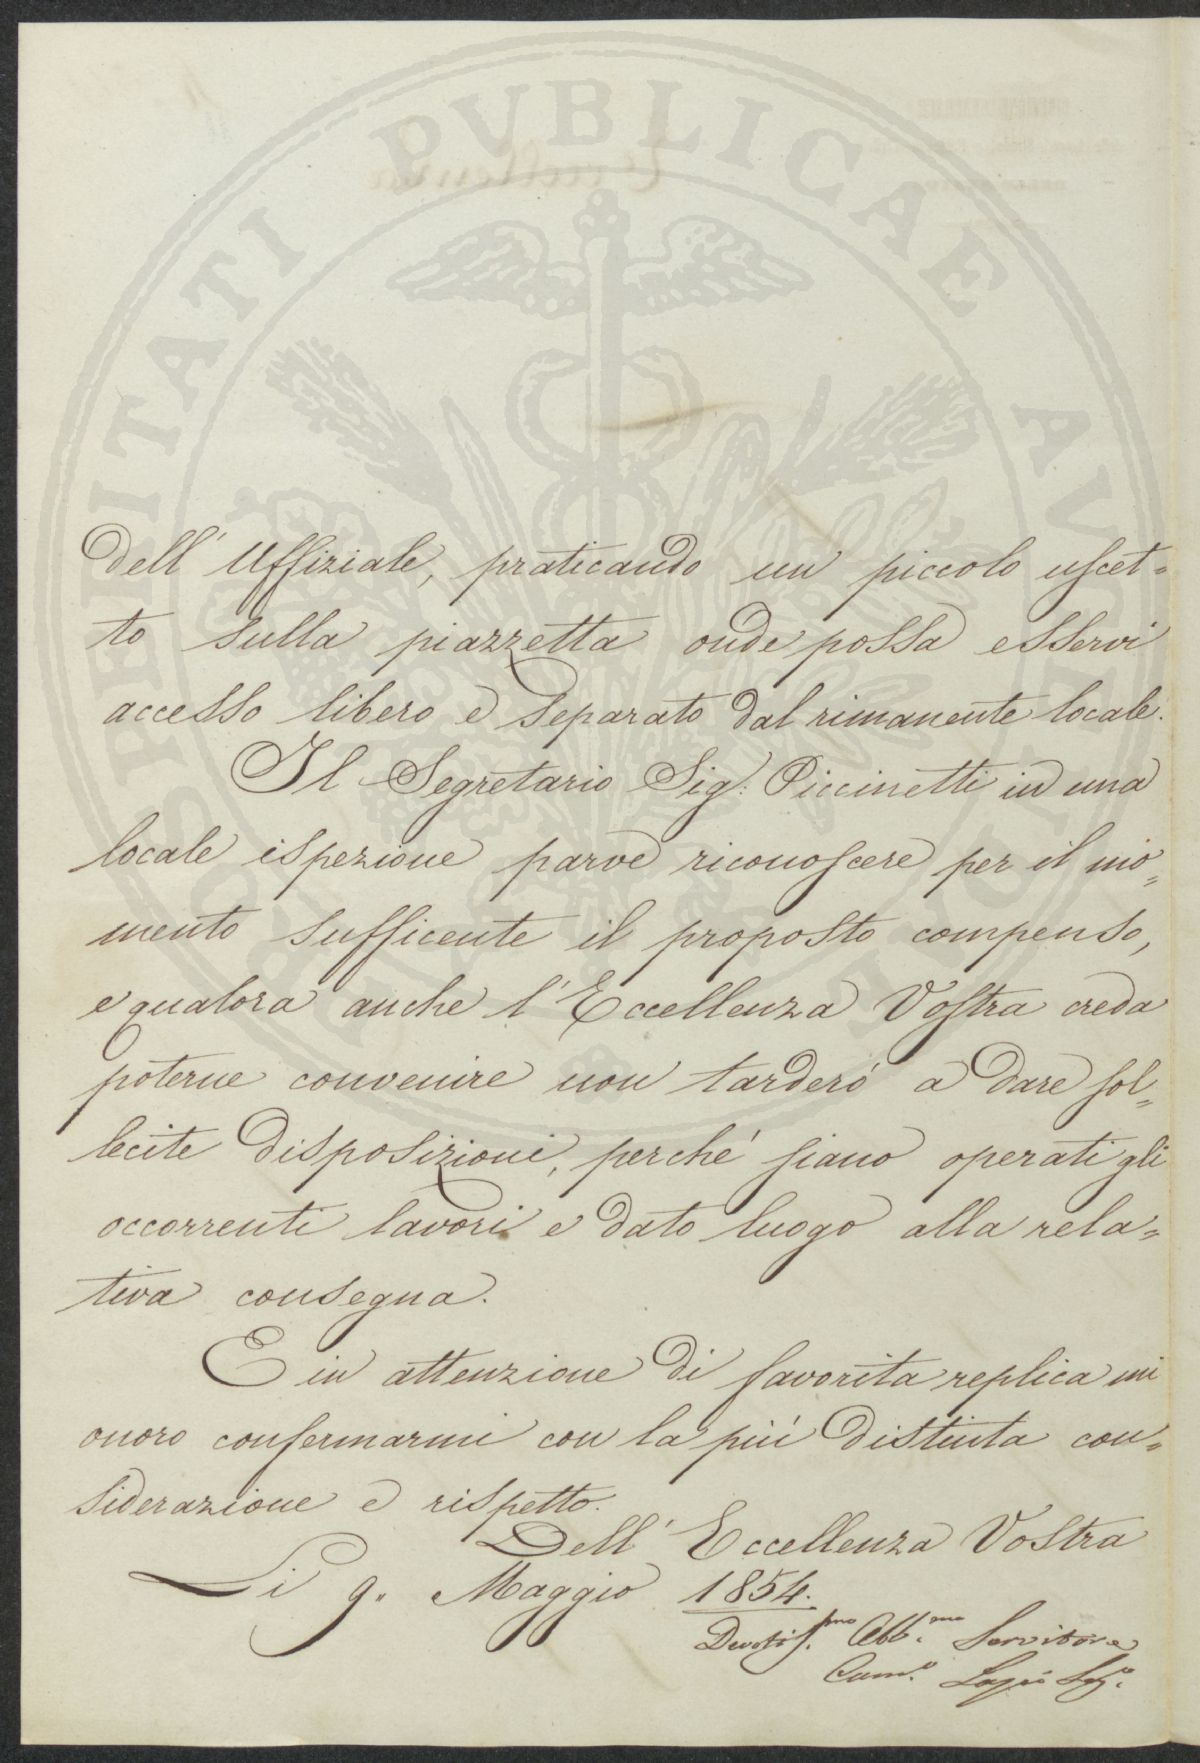 PROSPERITATI PVBLICAE AVGENDAE
dell' Uffiziale, praticando un piccolo uscet=
to sulla piazzetta onde possa esservi
accesso libero e separato dal rimanente locale.
Il Segretario Sig: Piccinetti in una
locale ispezione parve riconoscere per il mo=
mento sufficente il proposto compenso,
e qualora anche l'Eccellenza Vostra creda
poterne convenire non tarderó a dare sol=
lecite disposizioni, perché siano operati gli
occorrenti lavori e dato luogo alla rela=
tiva consegna.
E in attenzione di favorita replica mi
onoro confermarmi con la piú distinta con=
siderazione e rispetto.
Dell' Eccellenza Vostra
Li 9. Maggio 1854.
Devotis.mo Obb.mo Servitore